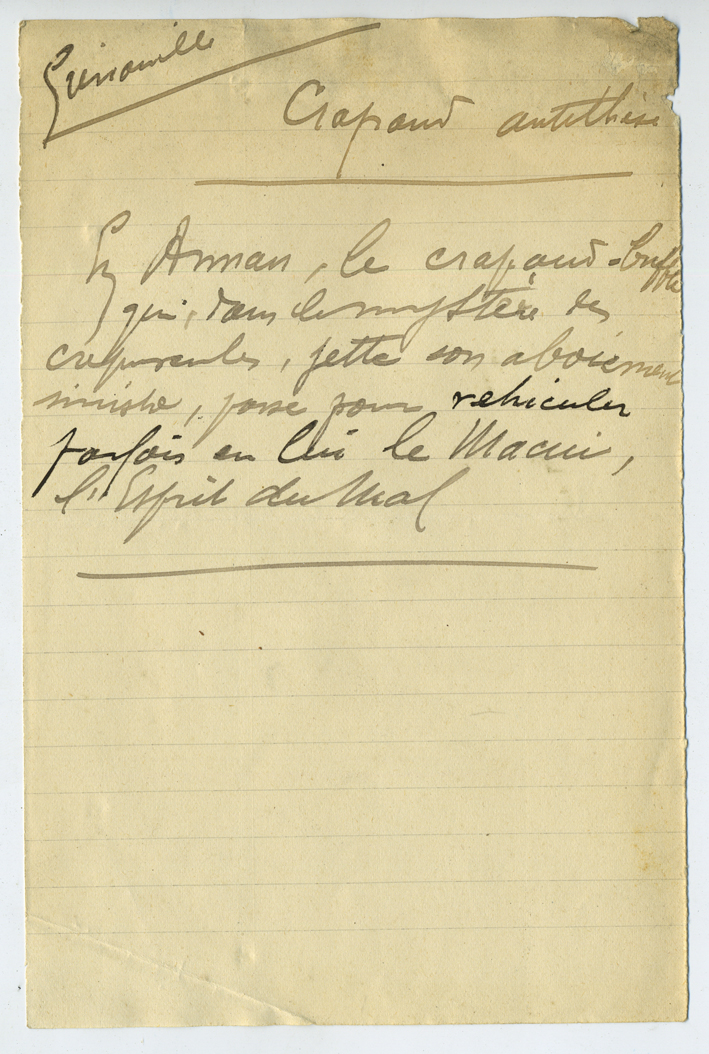 Grenouille
Crapaud antithèse
En Annam, le crapaud-buffle
qui, dans le mystère des
crépuscules, jette son aboiement
sinistre, passe pour véhiculer
parfois en lui le Macui,
l'Esprit du Mal